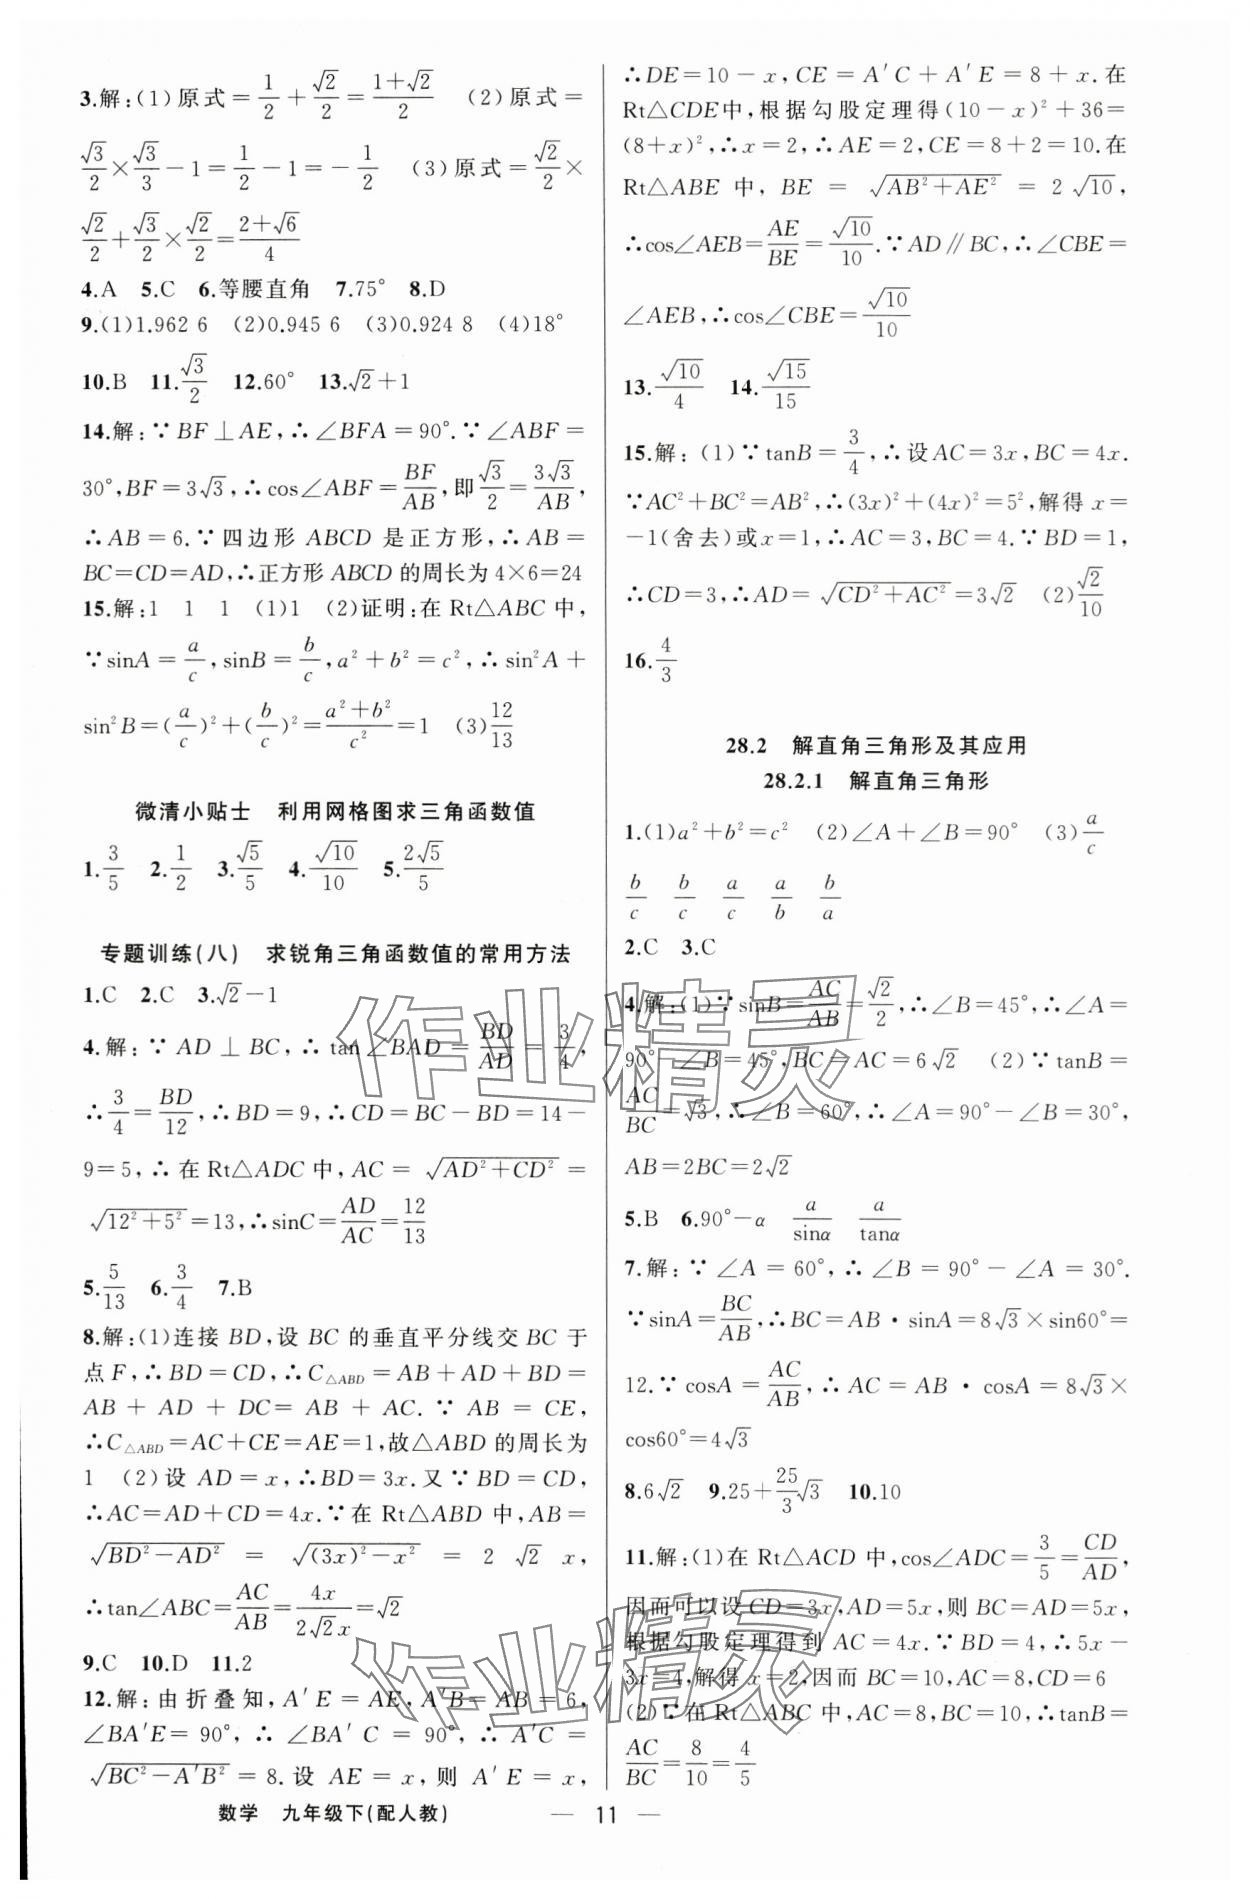 3.解:(1)原式=1/2+√2/2=(1+√2)/2 (2)原式=
√3/2×√3/3-1=1/2-1=-1/2 (3)原式=√2/2×
√2/2+√3/2×√2/2=(2+√6)/4
4.A 5.C 6.等腰直角 7.75° 8.D
9.(1)1.962 6 (2)0.945 6 (3)0.924 8 (4)18°
10.B 11.√3/2 12.60° 13.√2+1
14.解:∵BF⊥AE,∴∠BFA=90°.∵∠ABF=
30°,BF=3√3,∴cos∠ABF=BF/AB,即√3/2=3√3/AB,
∴AB=6.∵四边形 ABCD 是正方形,∴AB=
BC=CD=AD,∴正方形 ABCD 的周长为 4×6=24
15.解:1 1 1 (1)1 (2)证明:在 Rt△ABC 中,
∵sinA=a/c,sinB=b/c,a²+b²=c²,∴sin²A+
sin²B=(a/c)²+(b/c)²=(a²+b²)/c²=1 (3)12/13
微清小贴士 利用网格图求三角函数值
1.3/5 2.1/2 3.√5/5 4.√10/10 5.2√5/5
专题训练(八) 求锐角三角函数值的常用方法
1.C 2.C 3.√2-1
4.解:∵AD⊥BC,∴tan∠BAD=BD/AD=3/4,
∴3/4=BD/12,∴BD=9,∴CD=BC-BD=14-
9=5,∴在 Rt△ADC 中,AC=√(AD²+CD²)=
√(12²+5²)=13,∴sinC=AD/AC=12/13
5.5/13 6.3/4 7.B
8.解:(1)连接 BD,设 BC 的垂直平分线交 BC 于
点 F,∴BD=CD,∴C△ABD=AB+AD+BD=
AB+AD+DC=AB+AC.∵AB=CE,
∴C△ABD=AC+CE=AE=1,故△ABD 的周长为
1 (2)设 AD=x,∴BD=3x.又∵BD=CD,
∴AC=AD+CD=4x.∵在 Rt△ABD 中,AB=
√(BD²-AD²)=√((3x)²-x²)=2√2x,
∴tan∠ABC=AC/AB=4x/(2√2x)=√2
9.C 10.D 11.2
12.解:由折叠知,A′E=AE,A′B=AB=6,
∠BA′E=90°,∴∠BA′C=90°,∴A′C=
√(BC²-A′B²)=8.设 AE=x,则 A′E=x,
∴DE=10-x,CE=A′C+A′E=8+x.在
Rt△CDE中,根据勾股定理得(10-x)²+36=
(8+x)²,∴x=2,∴AE=2,CE=8+2=10.在
Rt△ABE 中,BE=√(AB²+AE²)=2√10,
∴cos∠AEB=AE/BE=√10/10.∵AD∥BC,∴∠CBE=
∠AEB,∴cos∠CBE=√10/10
13.√10/4 14.√15/15
15.解:(1)∵tanB=3/4,∴设 AC=3x,BC=4x.
∵AC²+BC²=AB²,∴(3x)²+(4x)²=5²,解得 x=
-1(舍去)或x=1,∴AC=3,BC=4.∵BD=1,
∴CD=3,∴AD=√(CD²+AC²)=3√2 (2)√2/10
16.4/3
28.2 解直角三角形及其应用
28.2.1 解直角三角形
1.(1)a²+b²=c² (2)∠A+∠B=90° (3)a/c
b/c b/c a/c a/b b/a
2.C 3.C
4.解:(1)∵sinB=AC/AB=√2/2,∴∠B=45°,∴∠A=
90°-∠B=45°,BC=AC=6√2 (2)∵tanB=
AC/BC=√3,∴∠B=60°,∴∠A=90°-∠B=30°,
AB=2BC=2√2
5.B 6.90°-α a/sinα a/tanα
7.解:∵∠A=60°,∴∠B=90°-∠A=30°.
∵sinA=BC/AB,∴BC=AB·sinA=8√3×sin60°=
12.∵cosA=AC/AB,∴AC=AB·cosA=8√3×
cos60°=4√3
8.6√2 9.25+25/3√3 10.10
11.解:(1)在 Rt△ACD 中,cos∠ADC=3/5=CD/AD,
因而可以设 CD=3x,AD=5x,则 BC=AD=5x,
根据勾股定理得到 AC=4x.∵BD=4,∴5x-
3x=4,解得 x=2,因而 BC=10,AC=8,CD=6
(2)∵在 Rt△ABC 中,AC=8,BC=10,∴tanB=
AC/BC=8/10=4/5
数学 九年级下(配人教) — 11 —
作业精灵
作业精灵